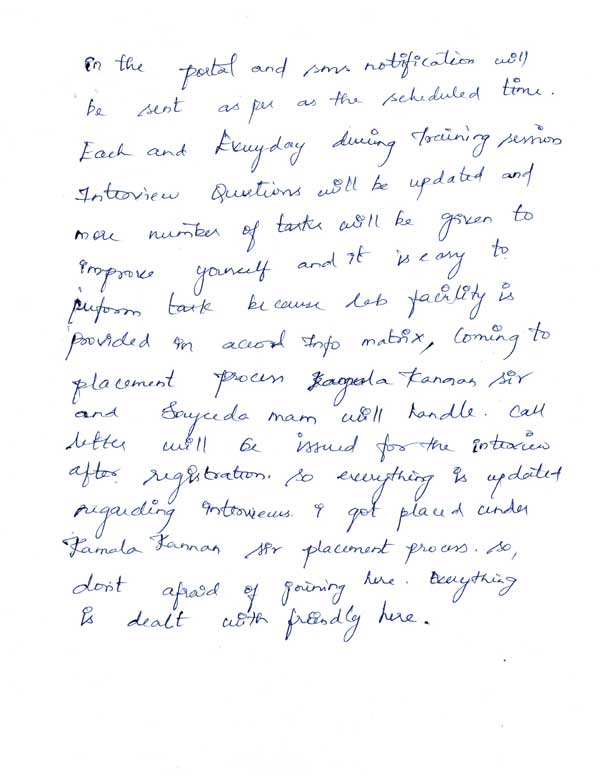 in the portal and sms notification will
be sent as per as the scheduled time.
Each and Everyday during Training session
Interview Questions will be updated and
more number of tasks will be given to
improve yourself and it is easy to
perform task because lab facility is
provided in accord Info matrix, Coming to
placement process Kamala Kannan sir
and Sayeeda mam will handle. Call
letter will be issued for the interview
after registration. So everything is updated
regarding interviews. I got placed under
Kamala Kannan sir placement process. So,
don't afraid of joining here. Everything
is dealt with friendly here.